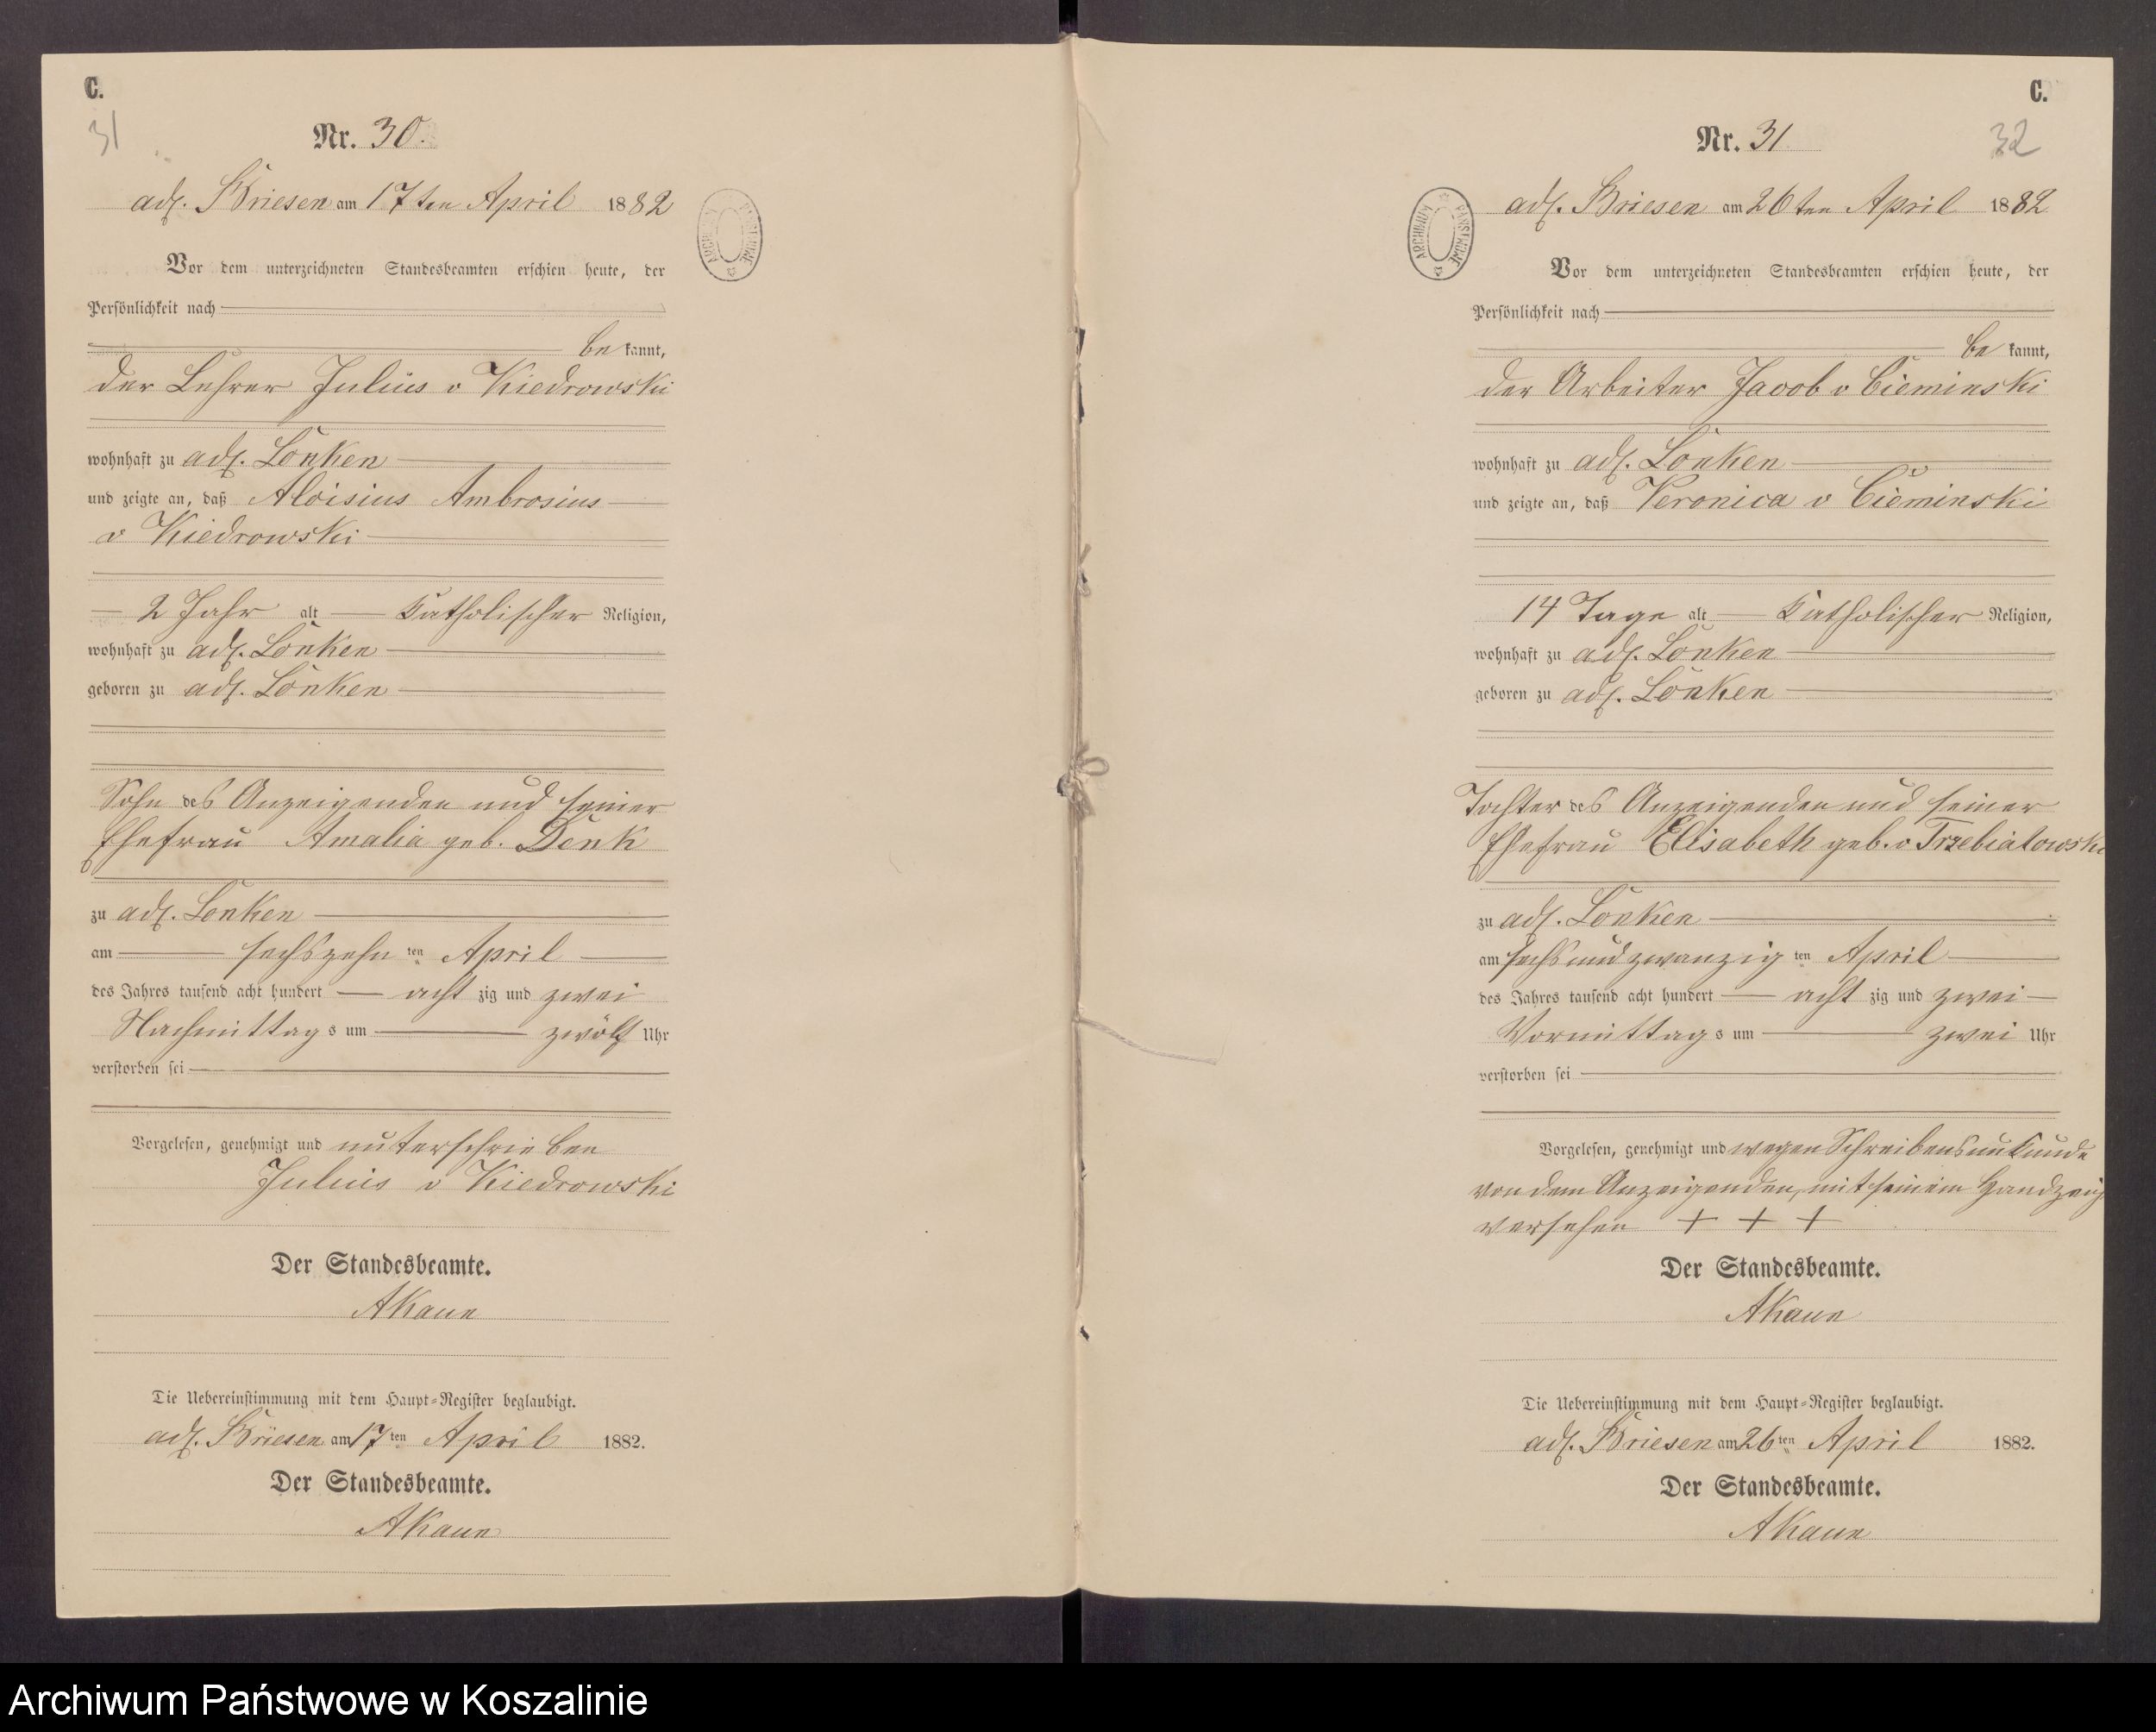 C.
31
Nr. 30.
adl. Briesen am 17ten April 1882
Vor dem unterzeichneten Standesbeamten erschien heute, der
Persönlichkeit nach
be kannt,
der Lehrer Julius v Kiedrowski
wohnhaft zu adl. Lonken
und zeigte an, daß Aloisius Ambrosius
v Kiedrowski
2 Jahr alt katholischer Religion,
wohnhaft zu adl. Lonken
geboren zu adl. Lonken
Sohn des Anzeigenden und seiner
Ehefrau Amalia geb. Denk
zu adl. Lonken
am sechszehn ten April
des Jahres tausend acht hundert acht zig und zwei
Nachmittags um zwölf Uhr
verstorben sei
Vorgelesen, genehmigt und unterschrieben
Julius v Kiedrowski
Der Standesbeamte.
AKaun
Die Uebereinstimmung mit dem Haupt-Register beglaubigt.
adl. Briesen am 17ten April 1882.
Der Standesbeamte.
AKaun
ARCHIWUM PAŃSTWOWE
C.
32
Nr. 31
adl. Briesen am 26ten April 1882
Vor dem unterzeichneten Standesbeamten erschien heute, der
Persönlichkeit nach
be kannt,
der Arbeiter Jacob v Cieminski
wohnhaft zu adl. Lonken
und zeigte an, daß Veronica v Cieminski
14 Tage alt katholischer Religion,
wohnhaft zu adl. Lonken
geboren zu adl. Lonken
Tochter des Anzeigenden und seiner
Ehefrau Elisabeth geb. v Trzebiatowski
zu adl. Lonken
am sechsundzwanzig ten April
des Jahres tausend acht hundert acht zig und zwei
Vormittags um zwei Uhr
verstorben sei
Vorgelesen, genehmigt und wegen Schreibensunkunde
von dem Anzeigenden, mit seinem Handzeich
versehen + + +
Der Standesbeamte.
AKaun
Die Uebereinstimmung mit dem Haupt-Register beglaubigt.
adl. Briesen am 26ten April 1882.
Der Standesbeamte.
AKaun
ARCHIWUM PAŃSTWOWE
Archiwum Państwowe w Koszalinie